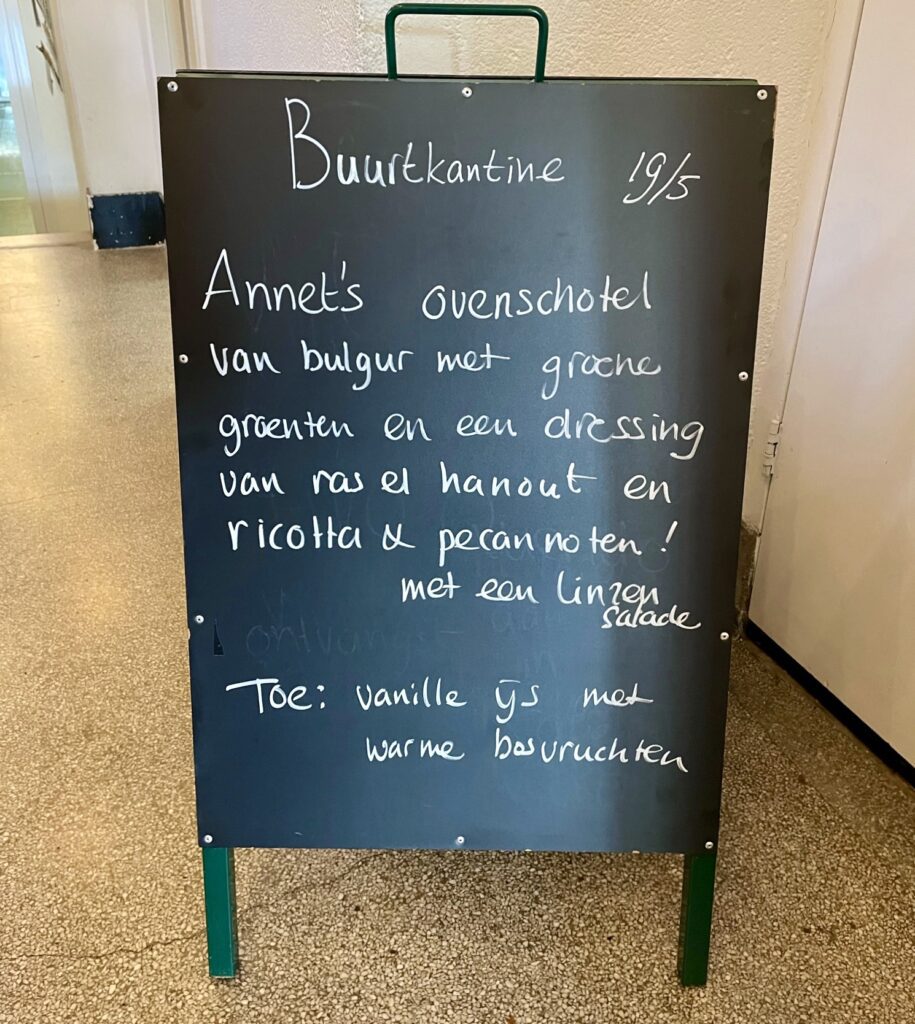 Buurtkantine 19/5
Annet's ovenschotel
van bulgur met groene
groenten en een dressing
van ras el hanout en
ricotta & pecannoten!
met een linzen
salade
Toe: vanille ijs met
warme bosvruchten